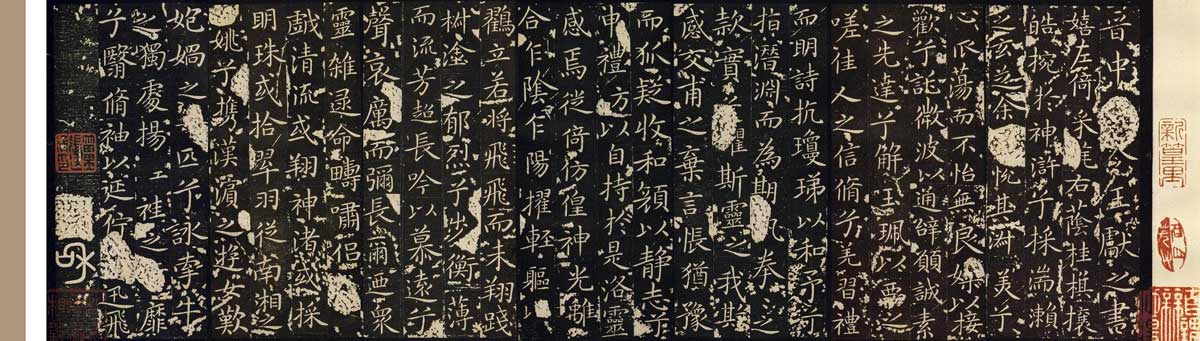 晉中令王獻之書
嬉左倚采旄右蔭桂旗攘
皓捥於神滸兮採湍瀨
之玄芝余悅其淑美兮
心振蕩而不怡無良媒以接
歡兮託微波以通辭願誠素
之先達兮解玉珮以要之
嗟佳人之信脩兮羌習禮
而明詩抗瓊珶以和予兮
指潛淵而為期執拳之
款實兮懼斯靈之我欺
感交甫之棄言悵猶豫
而狐疑收和顏以靜志兮
申禮防以自持於是洛靈
感焉徙倚彷徨神光離
合乍陰乍陽擢輕軀以
鸛立若將飛而未翔踐
椒塗之郁烈兮步衡薄
而流芳超長吟以慕遠兮
聲哀厲而彌長爾迺眾
靈雜遝命疇嘯侶
戲清流或翔神渚或採
明珠或拾翠羽從南湘之
姚兮攜漢濱之遊女歎
媧之匹兮詠牽牛
之獨處揚袿之靡
兮翳脩袖以延佇迅飛